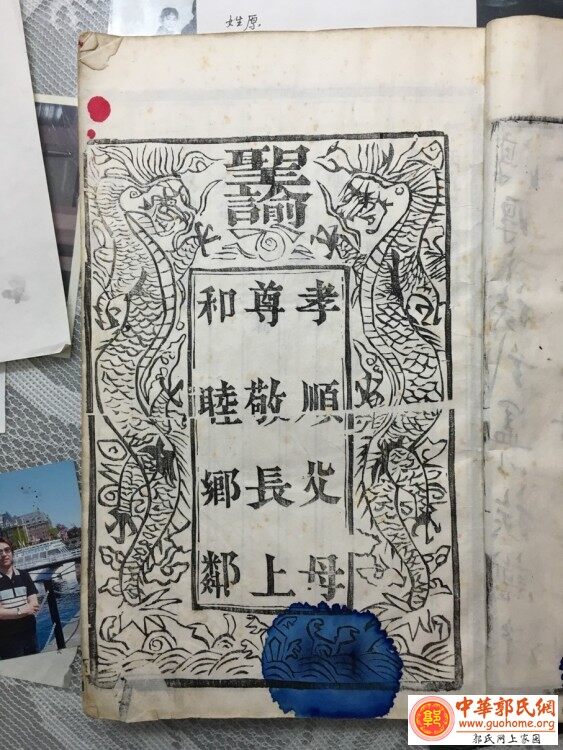 姓原
聖諭
孝順父母
尊敬長上
和睦鄉鄰
郭
中華郭氏網
www.guohome.org
郭氏网上家园